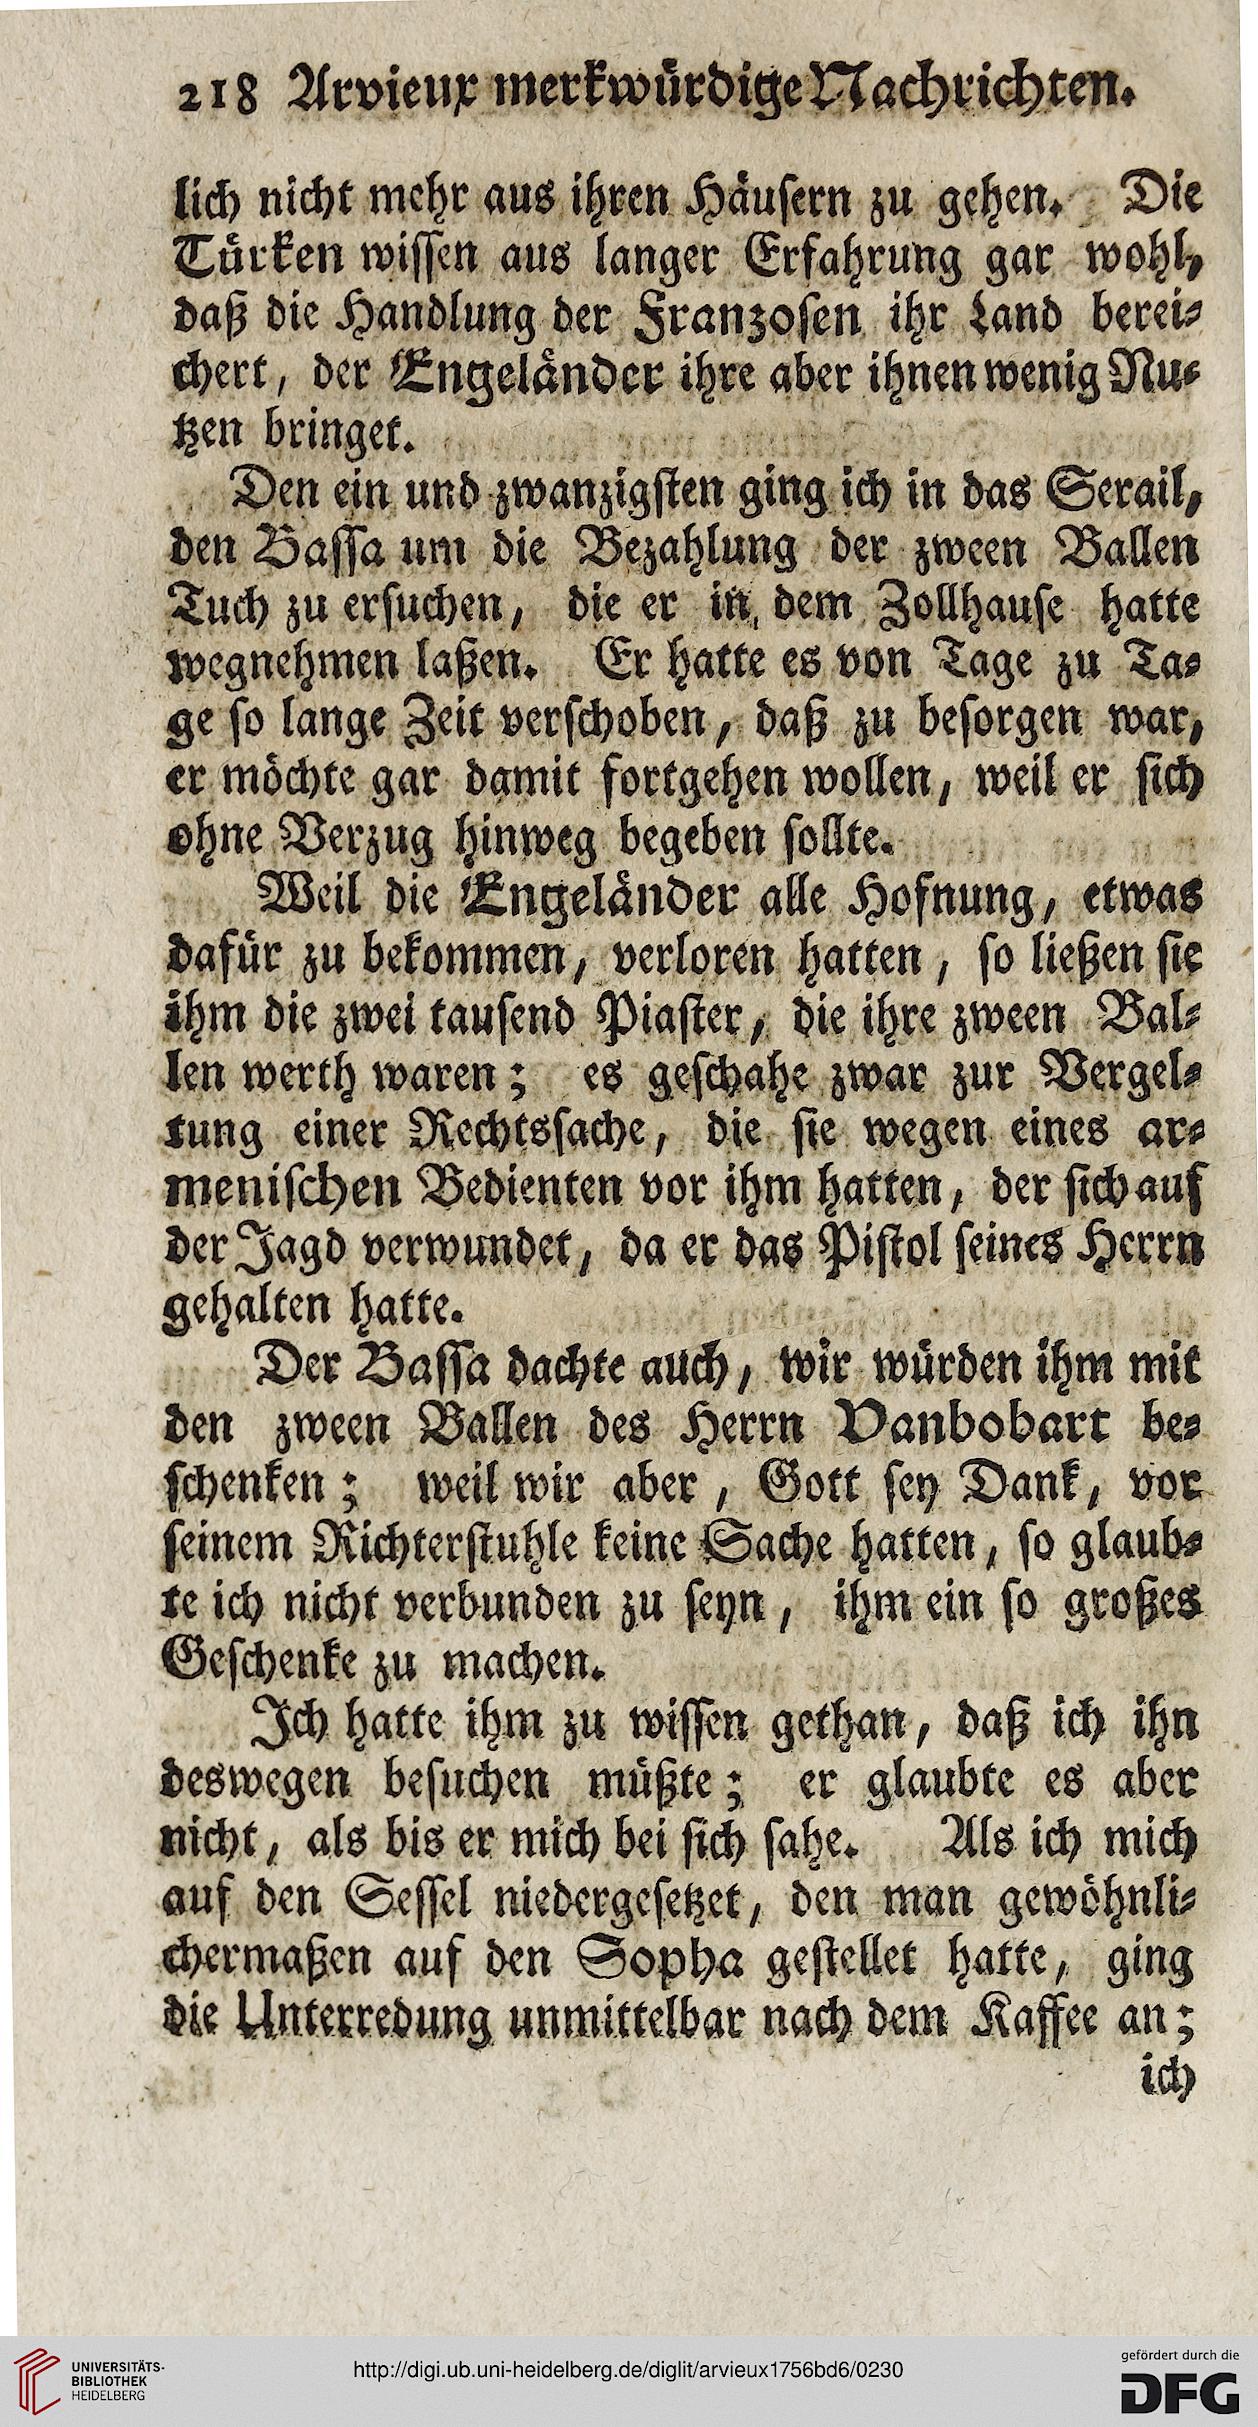 218 Arvieux merkwürdige Nachrichten.
lich nicht mehr aus ihren Häusern zu gehen. Die
Türken wissen aus langer Erfahrung gar wohl,
daß die Handlung der Franzosen ihr Land berei-
chert, der Engeländer ihre aber ihnen wenig Nu-
tzen bringet.
Den ein und zwanzigsten ging ich in das Serail,
den Bassa um die Bezahlung der zween Ballen
Tuch zu ersuchen, die er in dem Zollhause hatte
wegnehmen laßen. Er hatte es von Tage zu Ta-
ge so lange Zeit verschoben, daß zu besorgen war,
er möchte gar damit fortgehen wollen, weil er sich
ohne Verzug hinweg begeben sollte.
Weil die Engeländer alle Hofnung, etwas
dafür zu bekommen, verloren hatten, so ließen sie
ihm die zwei tausend Piaster, die ihre zween Bal-
len werth waren; es geschahe zwar zur Vergel-
tung einer Rechtssache, die sie wegen eines ar-
menischen Bedienten vor ihm hatten, der sich auf
der Jagd verwundet, da er das Pistol seines Herrn
gehalten hatte.
Der Bassa dachte auch, wir würden ihm mit
den zween Ballen des Herrn Vanbobart be-
schenken; weil wir aber, Gott sey Dank, vor
seinem Richterstuhle keine Sache hatten, so glaub-
te ich nicht verbunden zu seyn, ihm ein so großes
Geschenke zu machen.
Ich hatte ihm zu wissen gethan, daß ich ihn
deswegen besuchen müßte; er glaubte es aber
nicht, als bis er mich bei sich sahe. Als ich mich
auf den Sessel niedergesetzet, den man gewöhnli-
chermaßen auf den Sopha gestellet hatte, ging
die Unterredung unmittelbar nach dem Kaffee an;
ich
UNIVERSITÄTS-
BIBLIOTHEK
HEIDELBERG
http://digi.ub.uni-heidelberg.de/diglit/arvieux1756bd6/0230
gefördert durch die
DFG